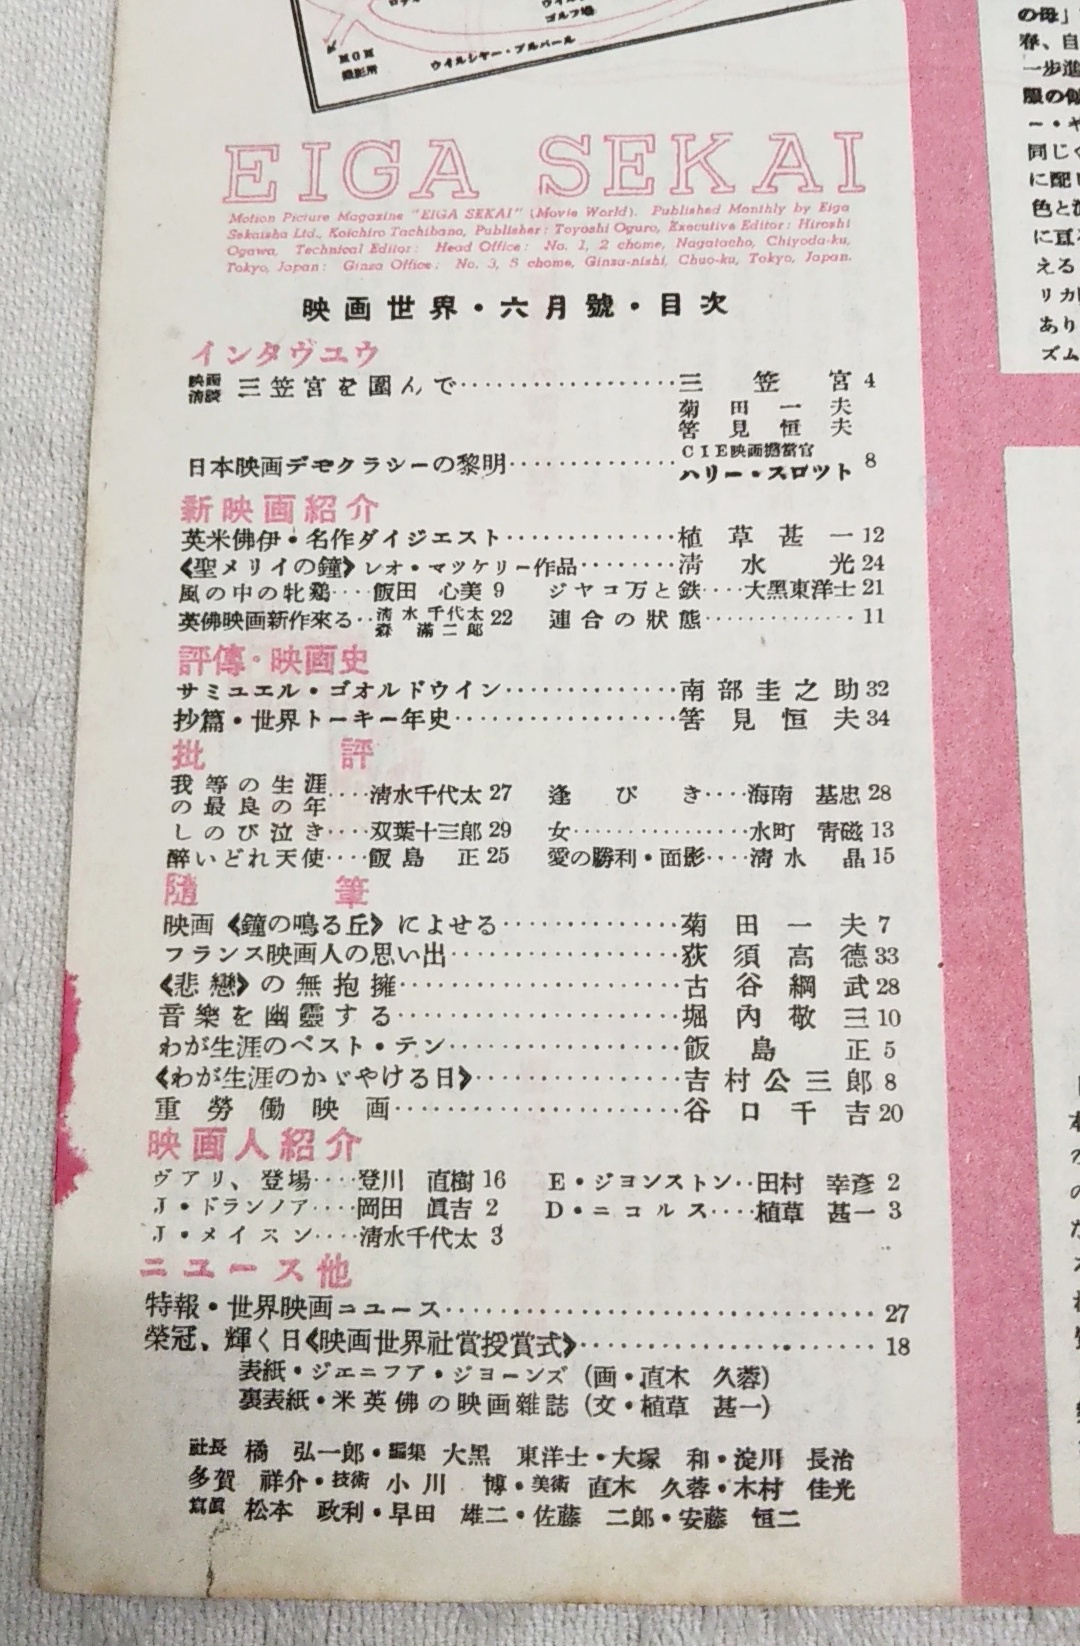 ゴルフ場
MGM
撮影所
ウイルシヤー・ブルバール
EIGA SEKAI
Motion Picture Magazine "EIGA SEKAI" (Movie World). Published Monthly by Eiga
Sekaisha Ltd., Koichiro Tachibana, Publisher: Toyoshi Oguro, Executive Editor: Hiroshi
Ogawa, Technical Editor: Head Office: No. 1, 2 chome, Nagatacho, Chiyoda-ku,
Tokyo, Japan: Ginza Office: No. 3, 5 chome, Ginza-nishi, Chuo-ku, Tokyo, Japan.
映画世界・六月號・目次
インタヴユウ
映画清談 三笠宮を圍んで……三笠宮 4
菊田一夫
筈見恒夫
日本映画デモクラシーの黎明……CIE映画擔當官 ハリー・スロツト 8
新映画紹介
英米佛伊・名作ダイジエスト……植草甚一 12
《聖メリイの鐘》レオ・マツケリー作品……清水光 24
風の中の牝鷄……飯田 心美 9 ジヤコ万と鉄……大黑東洋士 21
英佛映画新作來る……清水千代太 森滿二郎 22 連合の狀態……11
評傳・映画史
サミユエル・ゴオルドウイン……南部圭之助 32
抄篇・世界トーキー年史……筈見恒夫 34
批評
我等の生涯の最良の年……清水千代太 27 逢びき……海南 基忠 28
しのび泣き……双葉十三郎 29 女……水町 靑磁 13
醉いどれ天使……飯島 正 25 愛の勝利・面影……清水 晶 15
隨筆
映画《鐘の鳴る丘》によせる……菊田一夫 7
フランス映画人の思い出……荻須高德 33
《悲戀》の無抱擁……古谷綱武 28
音樂を幽靈する……堀内敬三 10
わが生涯のベスト・テン……飯島 正 5
《わが生涯のかゞやける日》……吉村公三郎 8
重勞働映画……谷口千吉 20
映画人紹介
ヴアリ、登場……登川 直樹 16 E・ジヨンストン……田村 幸彦 2
J・ドランノア……岡田 眞吉 2 D・ニコルス……植草 甚一 3
J・メイスン……清水千代太 3
ニユース他
特報・世界映画ニユース……27
榮冠、輝く日《映画世界社賞授賞式》……18
表紙・ジエニフア・ジヨーンズ (画・直木 久蓉)
裏表紙・米英佛の映画雜誌 (文・植草 甚一)
社長 橘 弘一郎・編集 大黑 東洋士・大塚 和・淀川 長治
多賀 祥介・技術 小川 博・美術 直木 久蓉・木村 佳光
寫眞 松本 政利・早田 雄二・佐藤 二郎・安藤 恒二
の母」
春、自
一歩進
同じく
に配
色と
に亘
える
リカ
あり
ズム